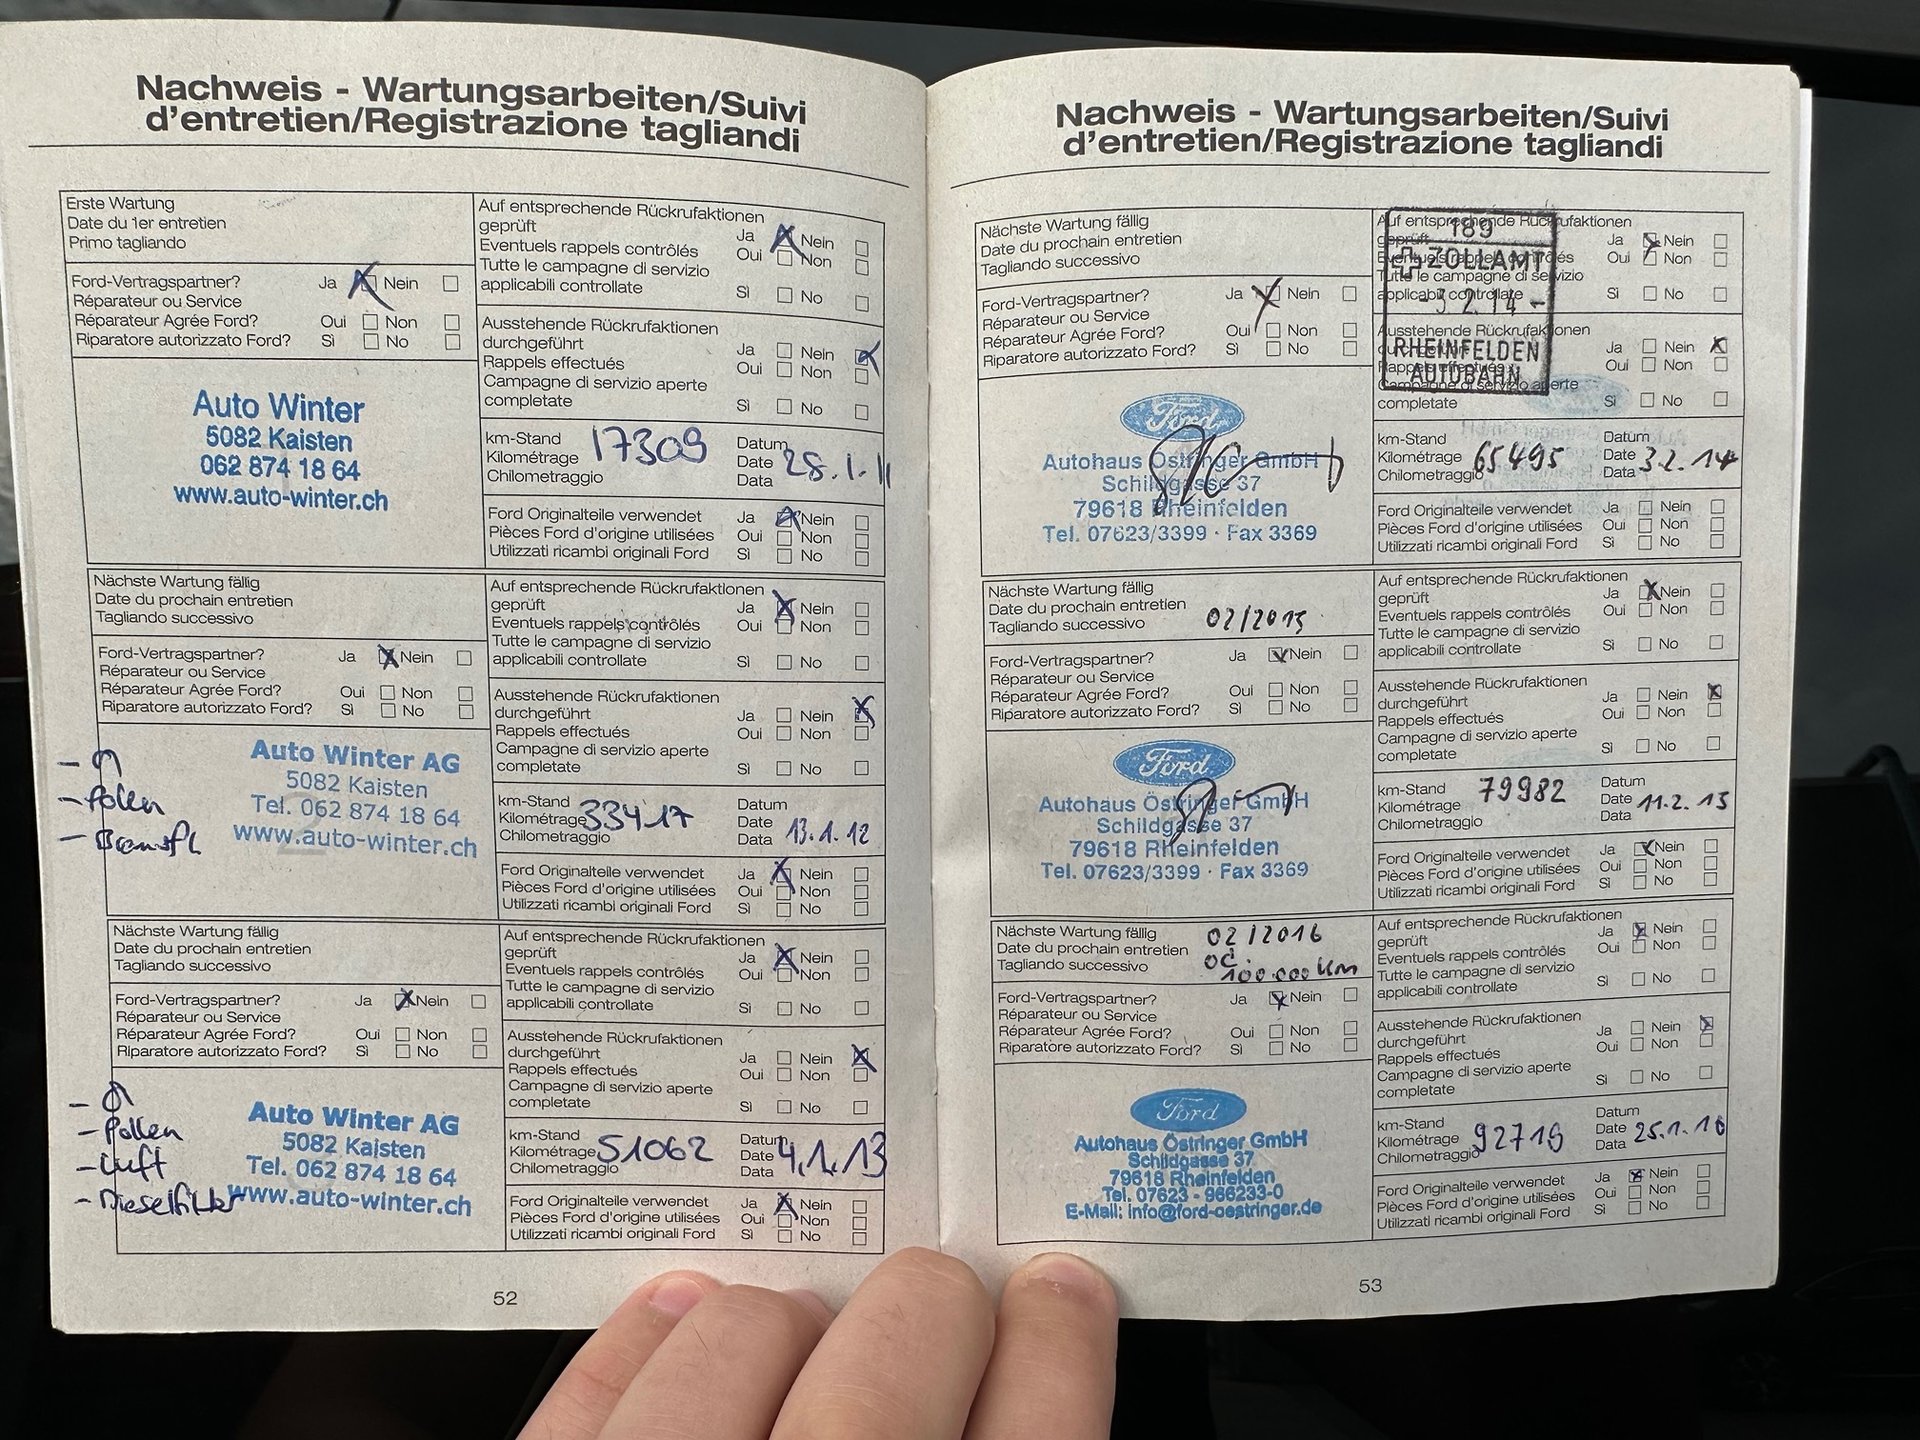 Nachweis - Wartungsarbeiten/Suivi
d'entretien/Registrazione tagliandi
Erste Wartung
Date du 1er entretien
Primo tagliando
Ford-Vertragspartner? Ja Nein
Réparateur ou Service
Réparateur Agrée Ford? Oui Non
Riparatore autorizzato Ford? Sì No
Auto Winter
5082 Kaisten
062 874 18 64
www.auto-winter.ch
Auf entsprechende Rückrufaktionen
geprüft Ja Nein
Eventuels rappels contrôlés Oui Non
Tutte le campagne di servizio
applicabili controllate Sì No
Ausstehende Rückrufaktionen
durchgeführt Ja Nein
Rappels effectués Oui Non
Campagne di servizio aperte
completate Sì No
km-Stand 17309 Datum
Kilométrage Date 28.1.11
Chilometraggio Data
Ford Originalteile verwendet Ja Nein
Pièces Ford d'origine utilisées Oui Non
Utilizzati ricambi originali Ford Sì No
Nächste Wartung fällig
Date du prochain entretien
Tagliando successivo
Ford-Vertragspartner? Ja Nein
Réparateur ou Service
Réparateur Agrée Ford? Oui Non
Riparatore autorizzato Ford? Sì No
- Pollen
- Bremsfl
Auto Winter AG
5082 Kaisten
Tel. 062 874 18 64
www.auto-winter.ch
Auf entsprechende Rückrufaktionen
geprüft Ja Nein
Eventuels rappels contrôlés Oui Non
Tutte le campagne di servizio
applicabili controllate Sì No
Ausstehende Rückrufaktionen
durchgeführt Ja Nein
Rappels effectués Oui Non
Campagne di servizio aperte
completate Sì No
km-Stand 33417 Datum
Kilométrage Date 13.1.12
Chilometraggio Data
Ford Originalteile verwendet Ja Nein
Pièces Ford d'origine utilisées Oui Non
Utilizzati ricambi originali Ford Sì No
Nächste Wartung fällig
Date du prochain entretien
Tagliando successivo
Ford-Vertragspartner? Ja Nein
Réparateur ou Service
Réparateur Agrée Ford? Oui Non
Riparatore autorizzato Ford? Sì No
- Pollen
- Luft
- Dieselfilter
Auto Winter AG
5082 Kaisten
Tel. 062 874 18 64
www.auto-winter.ch
Auf entsprechende Rückrufaktionen
geprüft Ja Nein
Eventuels rappels contrôlés Oui Non
Tutte le campagne di servizio
applicabili controllate Sì No
Ausstehende Rückrufaktionen
durchgeführt Ja Nein
Rappels effectués Oui Non
Campagne di servizio aperte
completate Sì No
km-Stand 51062 Datum
Kilométrage Date 4.1.13
Chilometraggio Data
Ford Originalteile verwendet Ja Nein
Pièces Ford d'origine utilisées Oui Non
Utilizzati ricambi originali Ford Sì No
52
Nachweis - Wartungsarbeiten/Suivi
d'entretien/Registrazione tagliandi
Nächste Wartung fällig
Date du prochain entretien
Tagliando successivo
Ford-Vertragspartner? Ja Nein
Réparateur ou Service
Réparateur Agrée Ford? Oui Non
Riparatore autorizzato Ford? Sì No
Ford
Autohaus Östringer GmbH
Schildgasse 37
79618 Rheinfelden
Tel. 07623/3399 · Fax 3369
Auf entsprechende Rückrufaktionen
geprüft Ja Nein
Eventuels rappels contrôlés Oui Non
Tutte le campagne di servizio
applicabili controllate Sì No
189
ZOLLAMT
-3.2.14-
RHEINFELDEN
AUTOBAHN
Ausstehende Rückrufaktionen
durchgeführt Ja Nein
Rappels effectués Oui Non
Campagne di servizio aperte
completate Sì No
km-Stand 65495 Datum
Kilométrage Date 3.2.14
Chilometraggio Data
Ford Originalteile verwendet Ja Nein
Pièces Ford d'origine utilisées Oui Non
Utilizzati ricambi originali Ford Sì No
Nächste Wartung fällig
Date du prochain entretien
Tagliando successivo 02/2015
Ford-Vertragspartner? Ja Nein
Réparateur ou Service
Réparateur Agrée Ford? Oui Non
Riparatore autorizzato Ford? Sì No
Ford
Autohaus Östringer GmbH
Schildgasse 37
79618 Rheinfelden
Tel. 07623/3399 · Fax 3369
Auf entsprechende Rückrufaktionen
geprüft Ja Nein
Eventuels rappels contrôlés Oui Non
Tutte le campagne di servizio
applicabili controllate Sì No
Ausstehende Rückrufaktionen
durchgeführt Ja Nein
Rappels effectués Oui Non
Campagne di servizio aperte
completate Sì No
km-Stand 79982 Datum
Kilométrage Date 11.2.15
Chilometraggio Data
Ford Originalteile verwendet Ja Nein
Pièces Ford d'origine utilisées Oui Non
Utilizzati ricambi originali Ford Sì No
Nächste Wartung fällig 02/2016
Date du prochain entretien od.
Tagliando successivo 100.000 km
Ford-Vertragspartner? Ja Nein
Réparateur ou Service
Réparateur Agrée Ford? Oui Non
Riparatore autorizzato Ford? Sì No
Ford
Autohaus Östringer GmbH
Schildgasse 37
79618 Rheinfelden
Tel. 07623 - 966233-0
E-Mail: info@ford-oestringer.de
Auf entsprechende Rückrufaktionen
geprüft Ja Nein
Eventuels rappels contrôlés Oui Non
Tutte le campagne di servizio
applicabili controllate Sì No
Ausstehende Rückrufaktionen
durchgeführt Ja Nein
Rappels effectués Oui Non
Campagne di servizio aperte
completate Sì No
km-Stand 92716 Datum
Kilométrage Date 25.1.16
Chilometraggio Data
Ford Originalteile verwendet Ja Nein
Pièces Ford d'origine utilisées Oui Non
Utilizzati ricambi originali Ford Sì No
53